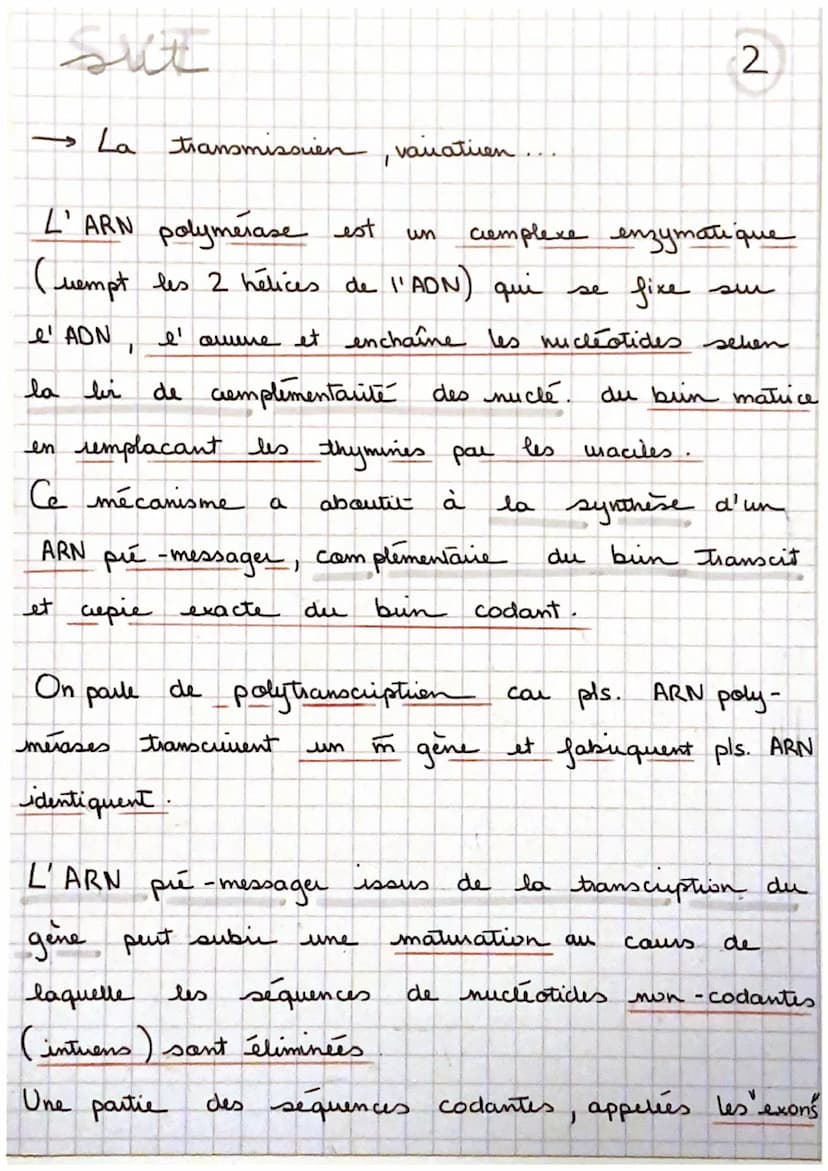 SVT
2
→ La transmission, variation...
L'ARN polymérase est un complexe enzymatique
(rompt les 2 hélices de l'ADN) qui se fixe sur
l'ADN, l'ouvre et enchaîne les nucléotides selon
la loi de complémentarité des nuclé. du brin matrice
en remplacant les thymines par les uraciles.
Ce mécanisme a aboutit à la synthèse d'un
ARN pré-messager, complémentaire du brin transcit
et copie exacte du brin codant.
On parle de polytranscription car pls. ARN poly-
mérases transcrivent un m̄ gène et fabriquent pls. ARN
identiquent.
L'ARN pré-messager issus de la transcription du
gène peut subir une maturation au cours de
laquelle les séquences de nucléotides non-codantes
(introns) sont éliminées
Une partie des séquences codantes, appelées les "exons"